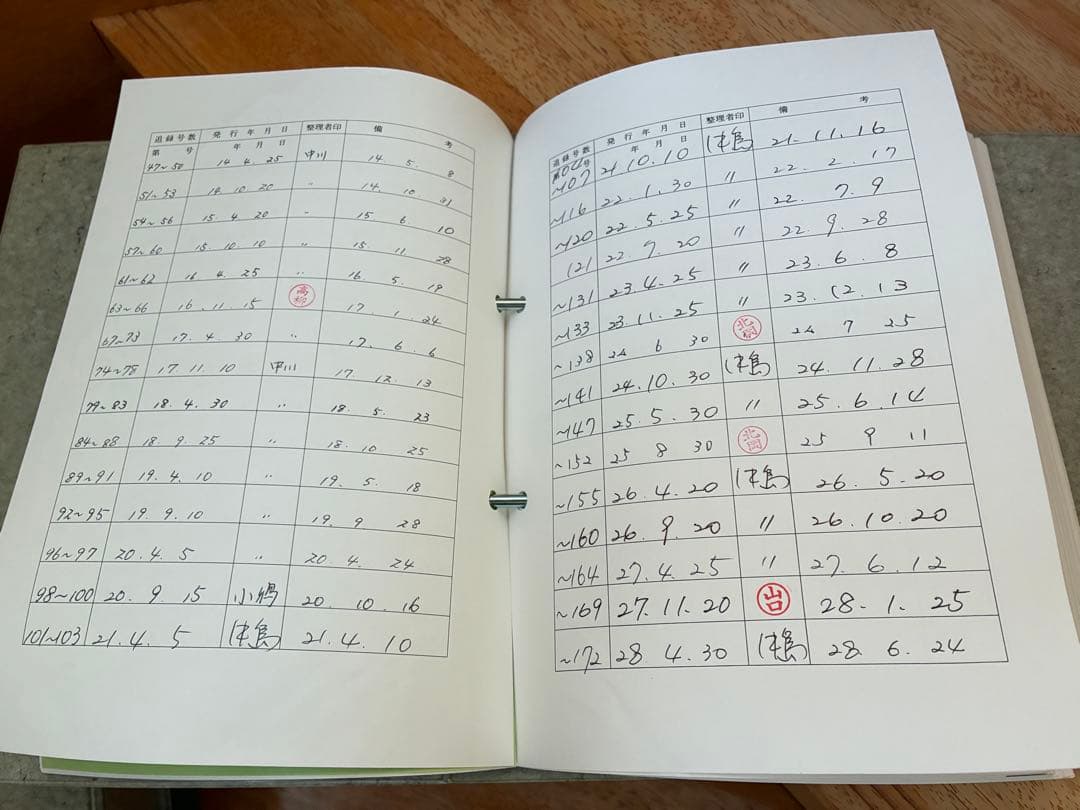 追録号数 発行年月日 整理者印 備考
第 号 年 月 日
47~50 14. 4. 25 中川 14. 5. 8
51~53 14. 10. 20 〃 14. 10 31
54~56 15. 4. 20 〃 15 6. 10
57~60 15. 10. 10 〃 15. 11. 28
61~62 16. 4. 25 〃 16. 5. 19
63~66 16. 11. 15 高柳 17. 1. 24
67~73 17. 4. 30 〃 17. 6. 6
74~78 17. 11. 10 中川 17. 12. 13
79~83 18. 4. 30 〃 18. 5. 23
84~88 18. 9. 25 〃 18. 10 25
89~91 19. 4. 10 〃 19. 5. 18
92~95 19. 9. 10 〃 19. 9 28
96~97 20. 4. 5 〃 20 4. 24
98~100 20. 9. 15 小嶋 20. 10. 16
101~103 21. 4. 5 津島 21. 4. 10
追録号数 発行年月日 整理者印 備考
第 号 年 月 日
104~107 21. 10. 10 津島 21. 11. 16
~116 22. 1. 30 〃 22. 2. 17
~120 22. 5. 25 〃 22. 7. 9
121 22. 7. 20 〃 22. 9. 28
~131 23. 4. 25 〃 23. 6. 8
~133 23. 11. 25 〃 23. 12. 13
~138 24 6 30 北岡 24 7 25
~141 24. 10. 30 津島 24. 11. 28
~147 25. 5. 30 〃 25. 6. 14
~152 25 8 30 北岡 25 9 11
~155 26. 4. 20 津島 26. 5. 20
~160 26. 9. 20 〃 26. 10. 20
~164 27. 4. 25 〃 27. 6. 12
~169 27. 11. 20 山口 28. 1. 25
~172 28 4. 30 津島 28. 6. 24